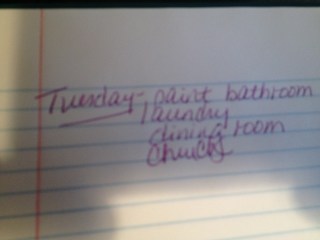 Tuesday- paint bathroom
laundry
dining room